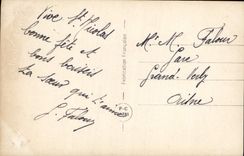 Vive St Nicolas
bonne fête et
bons baisers
ta sœur qui t'aime
G. Falour
Fabrication Française
M. M. Falour
Gare
Grand-Verly
Aisne